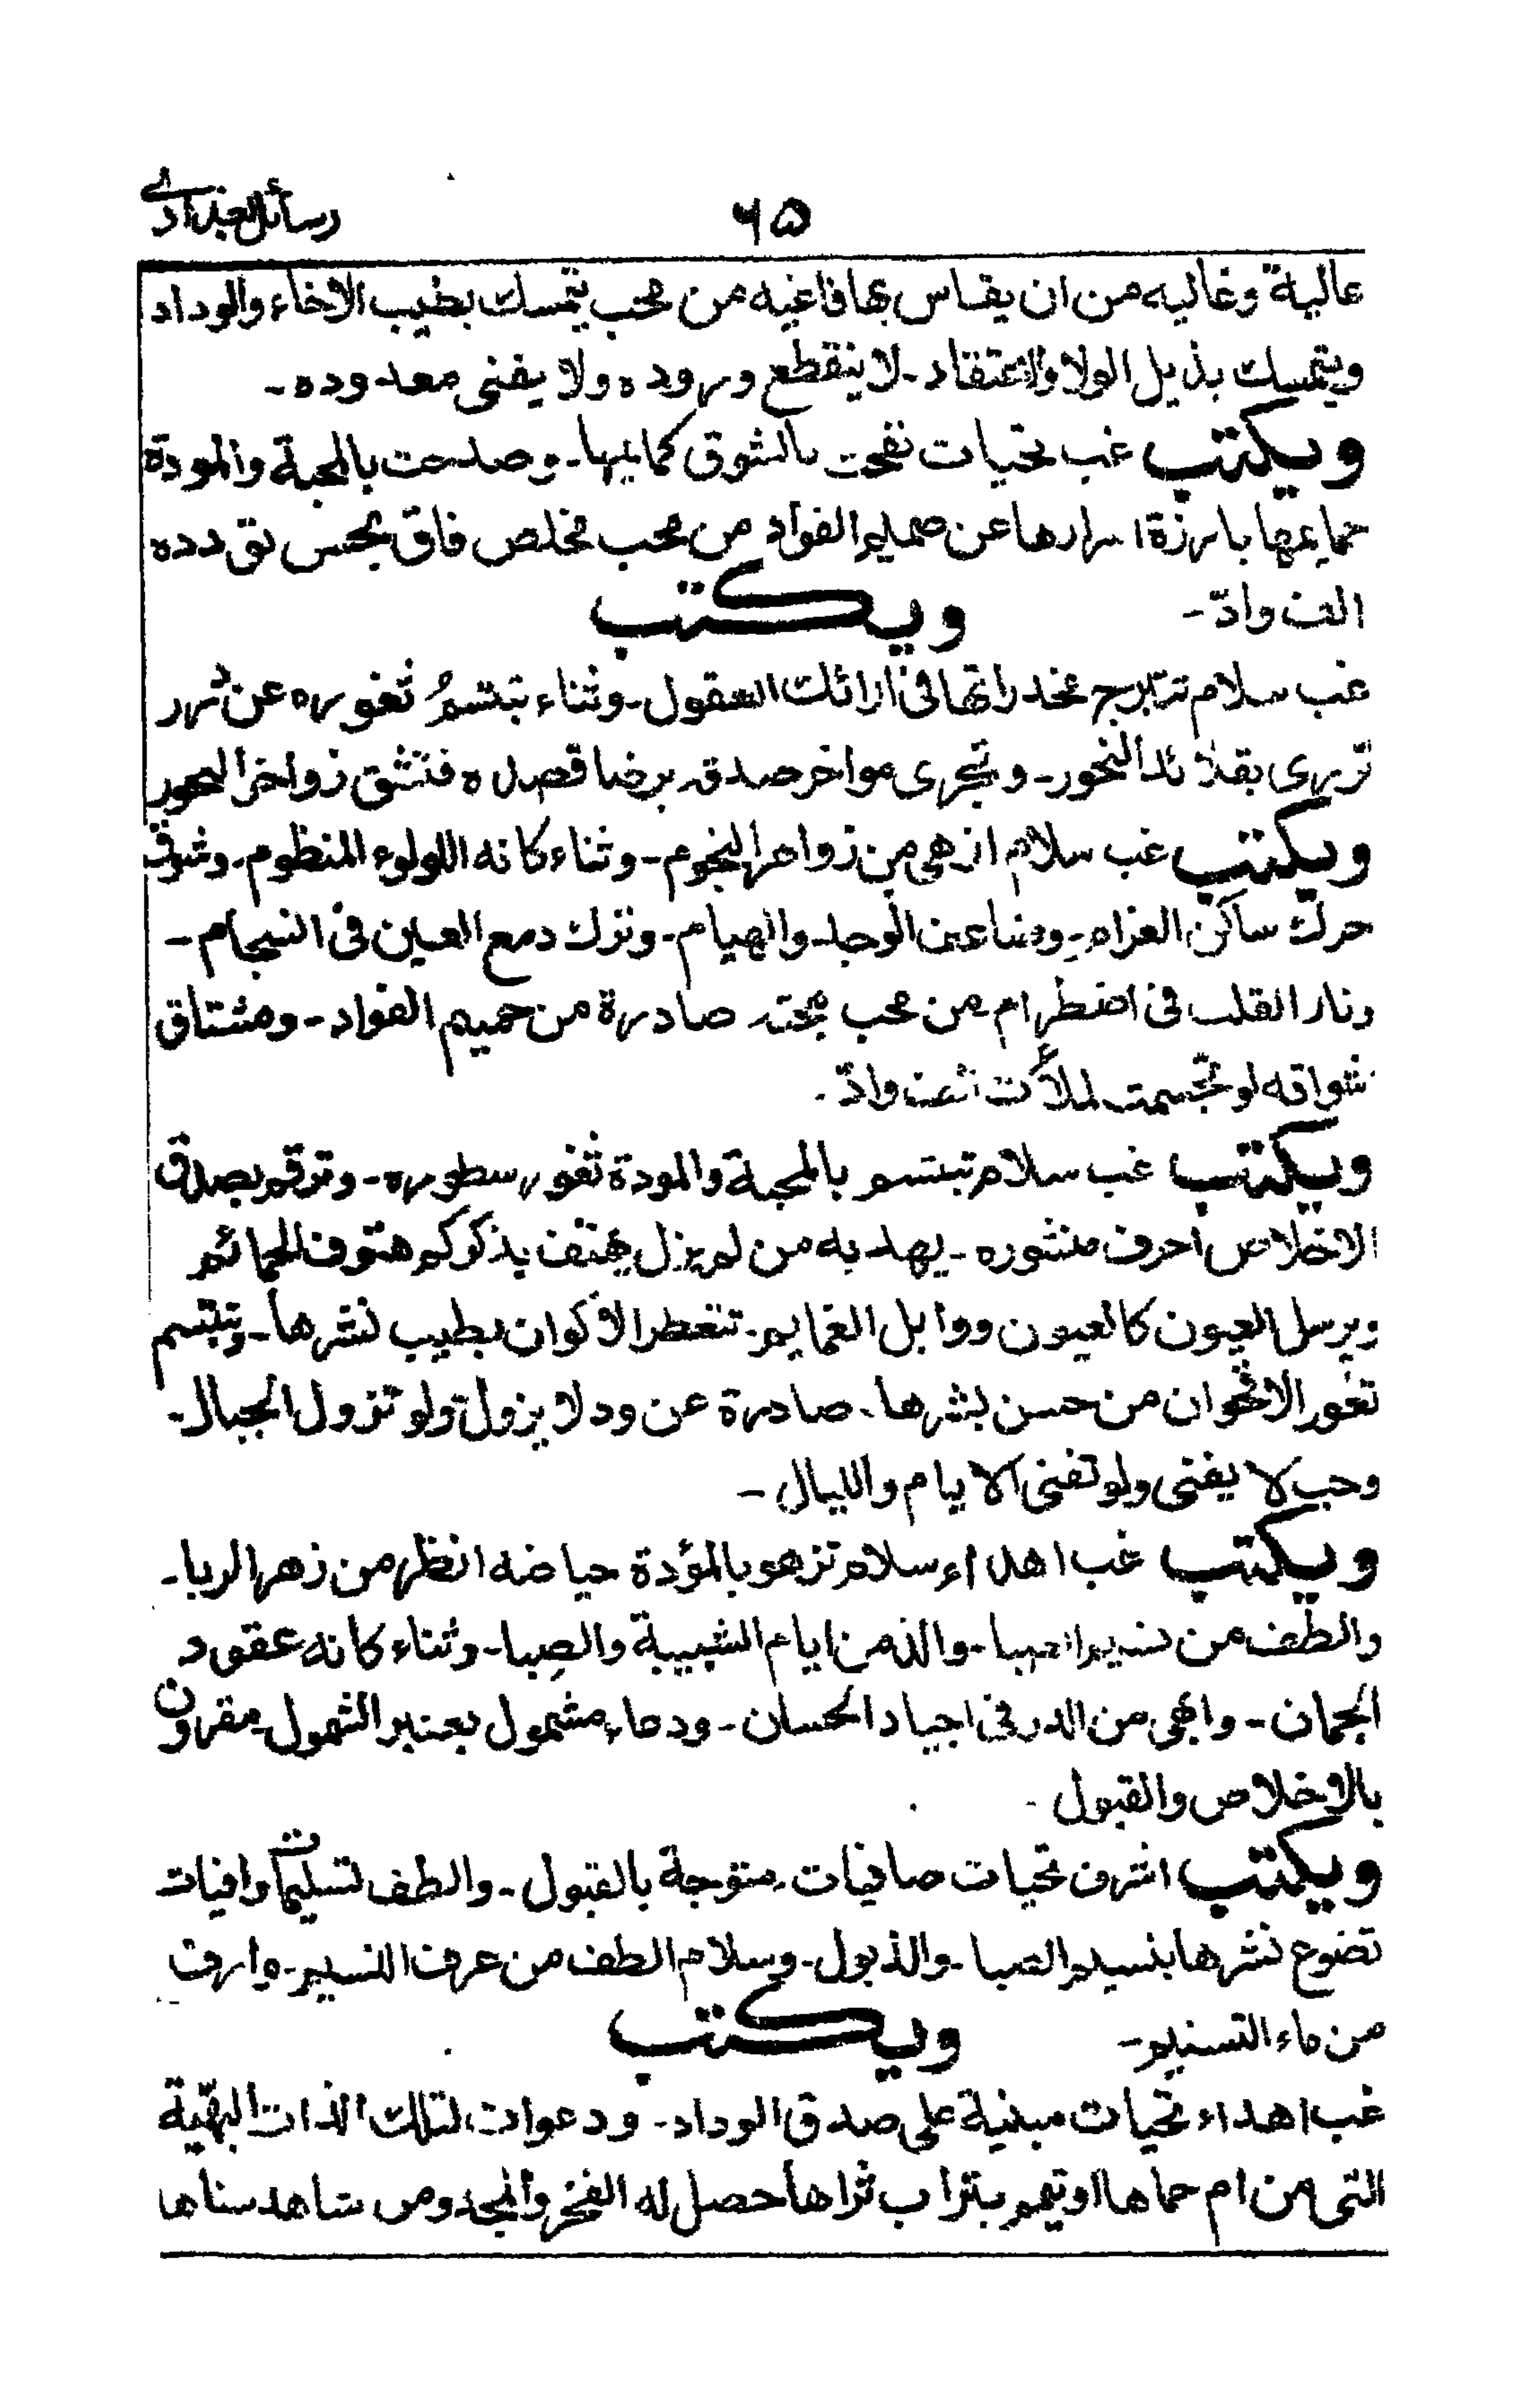 رسائل البغدادی
۶۵
عالية وغاليه من ان يقاس بها فاغيه من محب يتمسك بطيب الاخاء والوداد
ويتمسك بذيل الولا والاعتقاد۔ لا ينقطع وروده ولا يفنى معدوده۔
ويكتب غب تحيات نفحت بالشوق كمايمها۔ وصدحت بالمحبة والمودة
حمايمها بارزة اسرارها عن صميم الفواد من محب مخلص فاق بحسن تودده
الف وادّ۔ ويكتب
غب سلام تتبرج مخدراتها فى ارائك العقول۔ وثناء تبتسمُ ثغوره عن درر
تزرى بقلائد النحور۔ وتجرى مواخر صدق برضا قصده فتشق زواخر البحور
ويكتب غب سلام ازهى من زواهر النجوم۔ وثناء كانه اللولوء المنظوم۔ وشوق
حرك ساكن الغرام۔ وضاعف الوجد۔ والهيام۔ وترك دمع العين فى انسجام۔
ونار القلب فى اضطرام من محب محبته صادرة من صميم الفواد۔ ومشتاق
اشواقه لو تجسمت لملأت الف وادّ۔
ويكتب غب سلام تبتسم بالمحبة والمودة ثغور سطوره۔ وترقم بصدق
الاخلاص احرف منثوره۔ يهد به من لم يزل يهتف بذكركم هتوف الحمائم
ويرسل العيون كالعيون ووابل الغمايم۔ تتعطر الأكوان بطيب نشرها۔ وتبتسم
ثغور الاقحوان من حسن بشرها۔ صادرة عن ود لا يزول ولو تزول الجبال۔
وحب لا يفنى ولو تفنى الايام والليال۔
ويكتب غب اهداء سلام تزهو بالمؤدة حياضه انظر من زهر الربا۔
والطف من نسيم الصبا۔ والذ من ايام الشبيبة والصبا۔ وثناء كانه عقود
الجمان۔ وابهى من الدر فى اجياد الحسان۔ ودعاء مشمول بعنبر الشمول۔ مقرون
بالاخلاص والقبول۔
ويكتب اشرف تحيات صافيات متوجة بالقبول۔ والطف تسليمات وافيات
تضوع نشرها بنسيم الصبا۔ والذبول۔ وسلام الطف من عرف النسيم۔ وارق
من ماء التسنيم۔ ويكتب
غب اهداء تحيات مبنية على صدق الوداد۔ ودعوات لتلك الذات البهّية
التى من ام حماها او تيمم بتراب ثراها حصل له الفخر والمجد ومن شاهد سناها